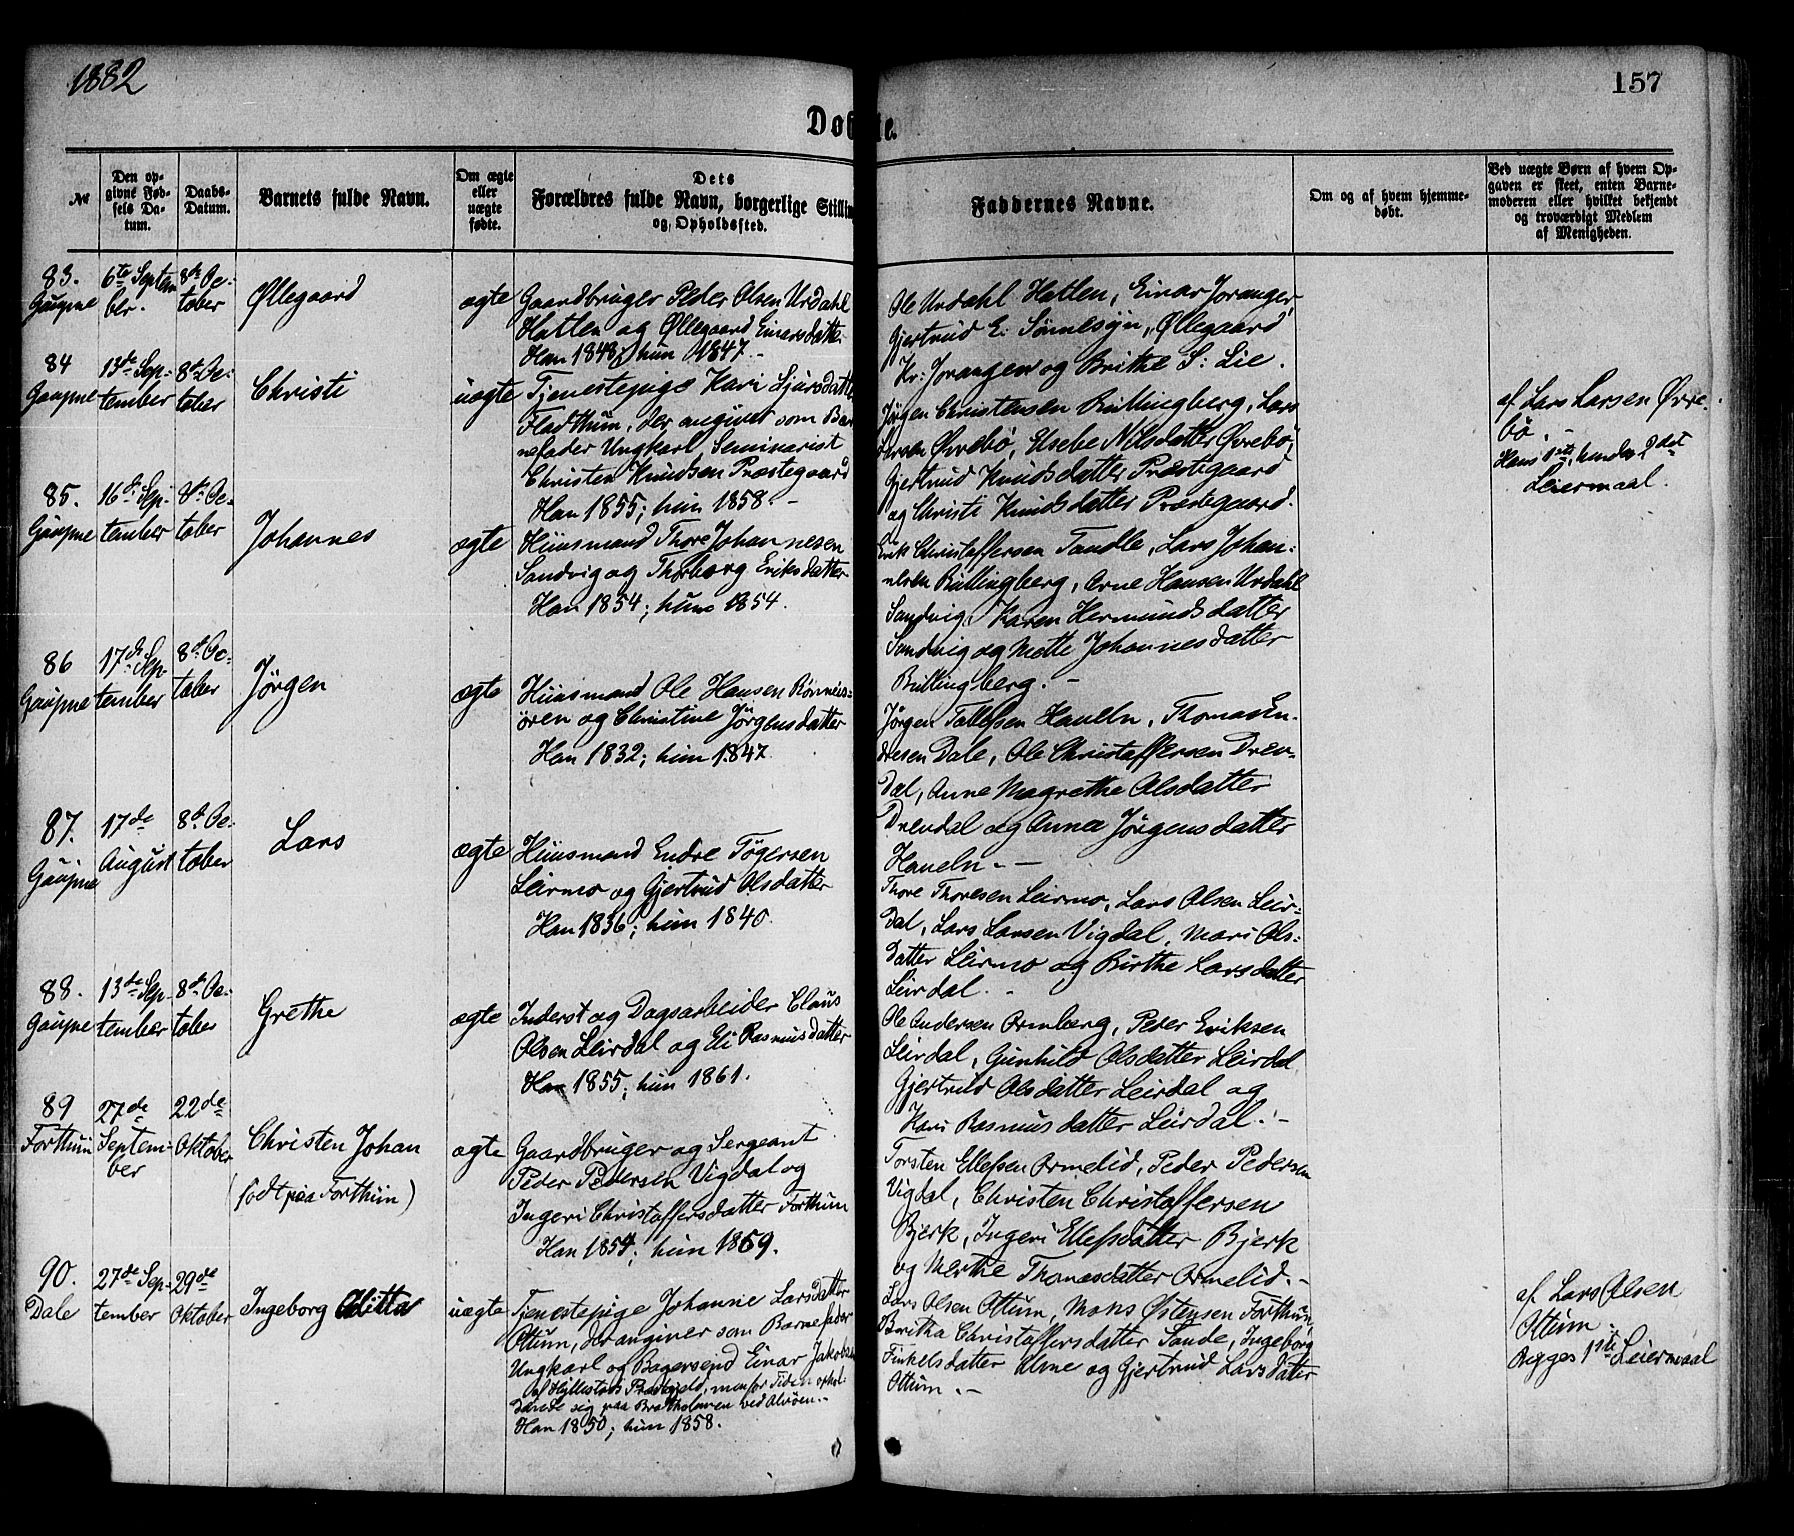 1882
157
Døbte.
No
Den opgivne Fødsels Datum.
Daabs-Datum.
Barnets fulde Navn.
Om ægte eller uægte fødte.
Dets Forældres fulde Navn, borgerlige Stilling og Opholdssted.
Faddernes Navne.
Om og af hvem hjemmedøbt.
Ved uægte Børn af hvem Opgaven er skeet, enten Barnemoderen eller hvilket bekjendt og troværdigt Medlem af Menigheden.
83. Gaupne
6te September.
8de October
Øllegaard
ægte
Gaardbruger Peder Olsen Urdahl
Hatlen og Øllegaard Einarsdatte.
Han 1848; hun 1847.-
Ole Urdahl Hatlen, Einar Joranger
Gjertrud E: Sønnesyn, Øllegaard
Kr: Joranger og Brithe S: Lie.
84 Gaupne
13de September
8de October
Christi
uægte
Tjenestepige Kari Sjursdatter
Fladthum, der angiver som Bar
nefader Ungkarl, Seminarist
Christen Knudsen Præstegaard
Han 1855; hun 1858.-
Jørgen Christensen Bullingberg, Lars
Larsen Øvrebø, Elsebe Nilsdatter Øvrebø,
Gjertrud Knudsdatter Præstegaard
og Christi Knudsdatter Præstegaard.
af Lars Larsen Øvre-
bø.
Hans 1ste, hendes 2det
Leiermaal.
85. Gaupne
16de September
8de October
Johannes
ægte
Huusmand Thore Johannesen
Sandvig og Thorborg Eriksdatter
Han 1854; hun 1854.
Erik Christaffersen Tandle, Lars Johan-
nesen Bullingberg, Arne Hansen Urdahl
Sandvig, Karen Hermundsdatter
Sandvig og Mette Johannesdatter
Bullingberg.-
86 Gaupne
17de September
8de October
Jørgen
ægte
Huusmand Ole Hansen Rønneis-
øren og Christine Jørgensdatter
Han 1832; hun 1847.
Jørgen Tollefsen Haveln, Thomas En-
dresen Dale, Ole Christaffersen Drev-
dal, Anne Magrethe Olsdatter
Drevdal og Anna Jørgensdatter
Haveln.-
87. Gaupne
17de August
8de October
Lars
ægte
Huusmand Endre Tøgersen
Leirmo og Gjertrud Olsdatter
Han 1836; hun 1840.
Thore Thoresen Leirmo, Lars Olsen Leir-
dal, Lars Larsen Vigdal, Mari Ols-
datter Leirmo og Birthe Larsdatter
Leirdal.-
88. Gaupne
13de September
8de October
Grethe
ægte
Inderst og Dagsarbeider Claus
Olsen Leirdal og Eli Rasmusdatter
Han 1855; hun 1861.
Ole Andersen Ormberg, Peder Eriksen
Leirdal, Gunhild Olsdatter Leirdal
Gjertrud Olsdatter Leirdal og
Kari Rasmusdatter Leirdal.-
89 Forthun
27de September
22de Oktober
Christen Johan
(født paa Forthun)
ægte
Gaardbruger og Sergeant
Peder Pedersen Vigdal og
Ingeri Christaffersdatter Forthun
Han 1854; hun 1859.
Torsten Ellefsen Ormelid, Peder Pedersen
Vigdal, Christen Christaffersen
Bjerk, Ingeri Ellefsdatter Bjerk
og Merthe Thomasdatter Ormelid.-
90. Dale
27de September
29de Oktober
Ingeborg Oditta
uægte
Tjenestepige Johanne Larsdatter
Ottum, der angiver som Barnefader
Ungkarl og Bagersvend Einar Jakobsen
af Hyllestads Præstegjeld, men for Tiden ophol-
dende sig paa Bratholmen ved Alvøen.-
Han 1850; hun 1858.
Lars Olsen Ottum, Mons Østensen Forthun,
Beritha Christaffersdatter Sande, Ingeborg
Finkelsdatter Ulme og Gjertrud Larsdatter
Ottum.-
af Lars Olsen
Ottum.
Begges 1ste Leiermaal